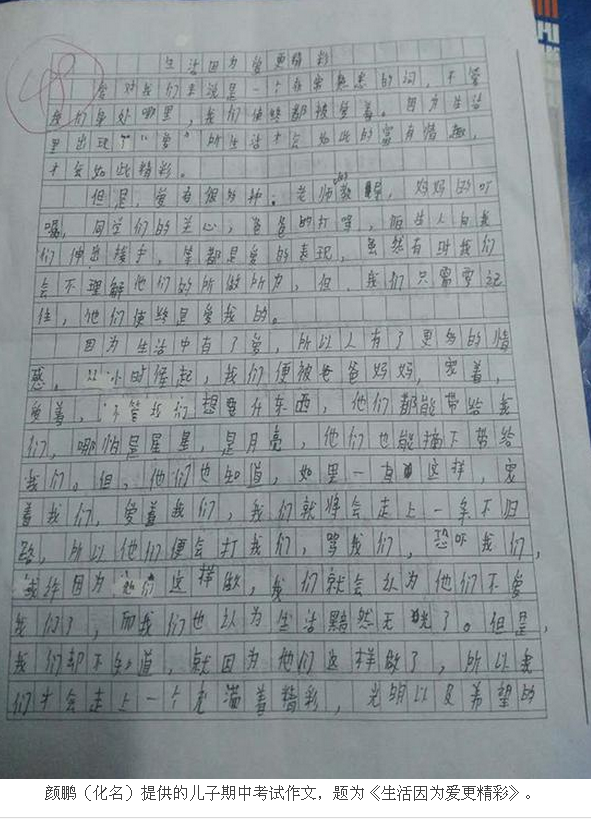 48
生活因为爱更精彩
爱对我们来说是一个非常熟悉的词，不管
我们身处哪里，我们使终都被爱着。因为生活
里出现了“爱”所生活才会如此的富有情趣，
才会如此精彩。
但是，爱有很多种：老师的教，妈妈的叮
嘱，同学们的关心，爸爸的打骂，陌生人向我
们伸出援手，等都是爱的表现，虽然有时我们
会不理解他们的所做所为，但，我们只需要记
住，他们使终是爱我的。
因为生活中有了爱，所以人有了更多的情
感，从小时候起，我们便被爸爸妈妈，宠着，
爱着，不管我们想要什东西，他们都能带给我
们，哪怕是星星，是月亮，他们也能摘下带给
我们。但，他们也知道，如里一直这样，宠
着我们，爱着我们，我们就将会走上一条不归
路，所以他们便会打我们，骂我们，恐吓我们，
或许因为他们这样做，我们就会认为他们不爱
我们了，而我们也以为生活黯然无光了。但是，
我们却不知道，就因为他们这样做了，所以我
们才会走上一个充满着精彩，光明以及希望的
颜鹏（化名）提供的儿子期中考试作文，题为《生活因为爱更精彩》。